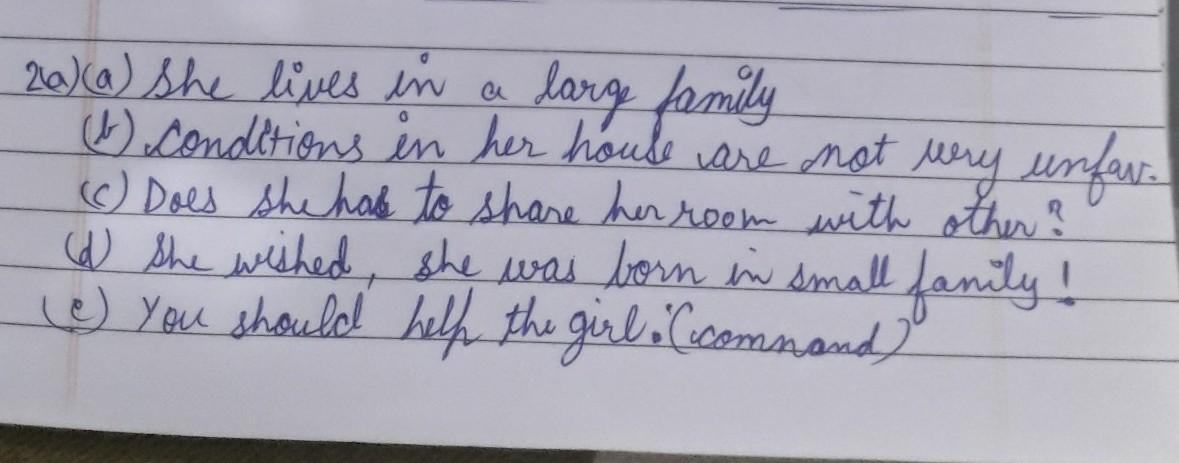 2(a)(a) She lives in a large family
(b) Conditions in her house are not very unfav.
(c) Does she has to share her room with other?
(d) She wished, she was born in small family!
(e) You should help the girl. (command)